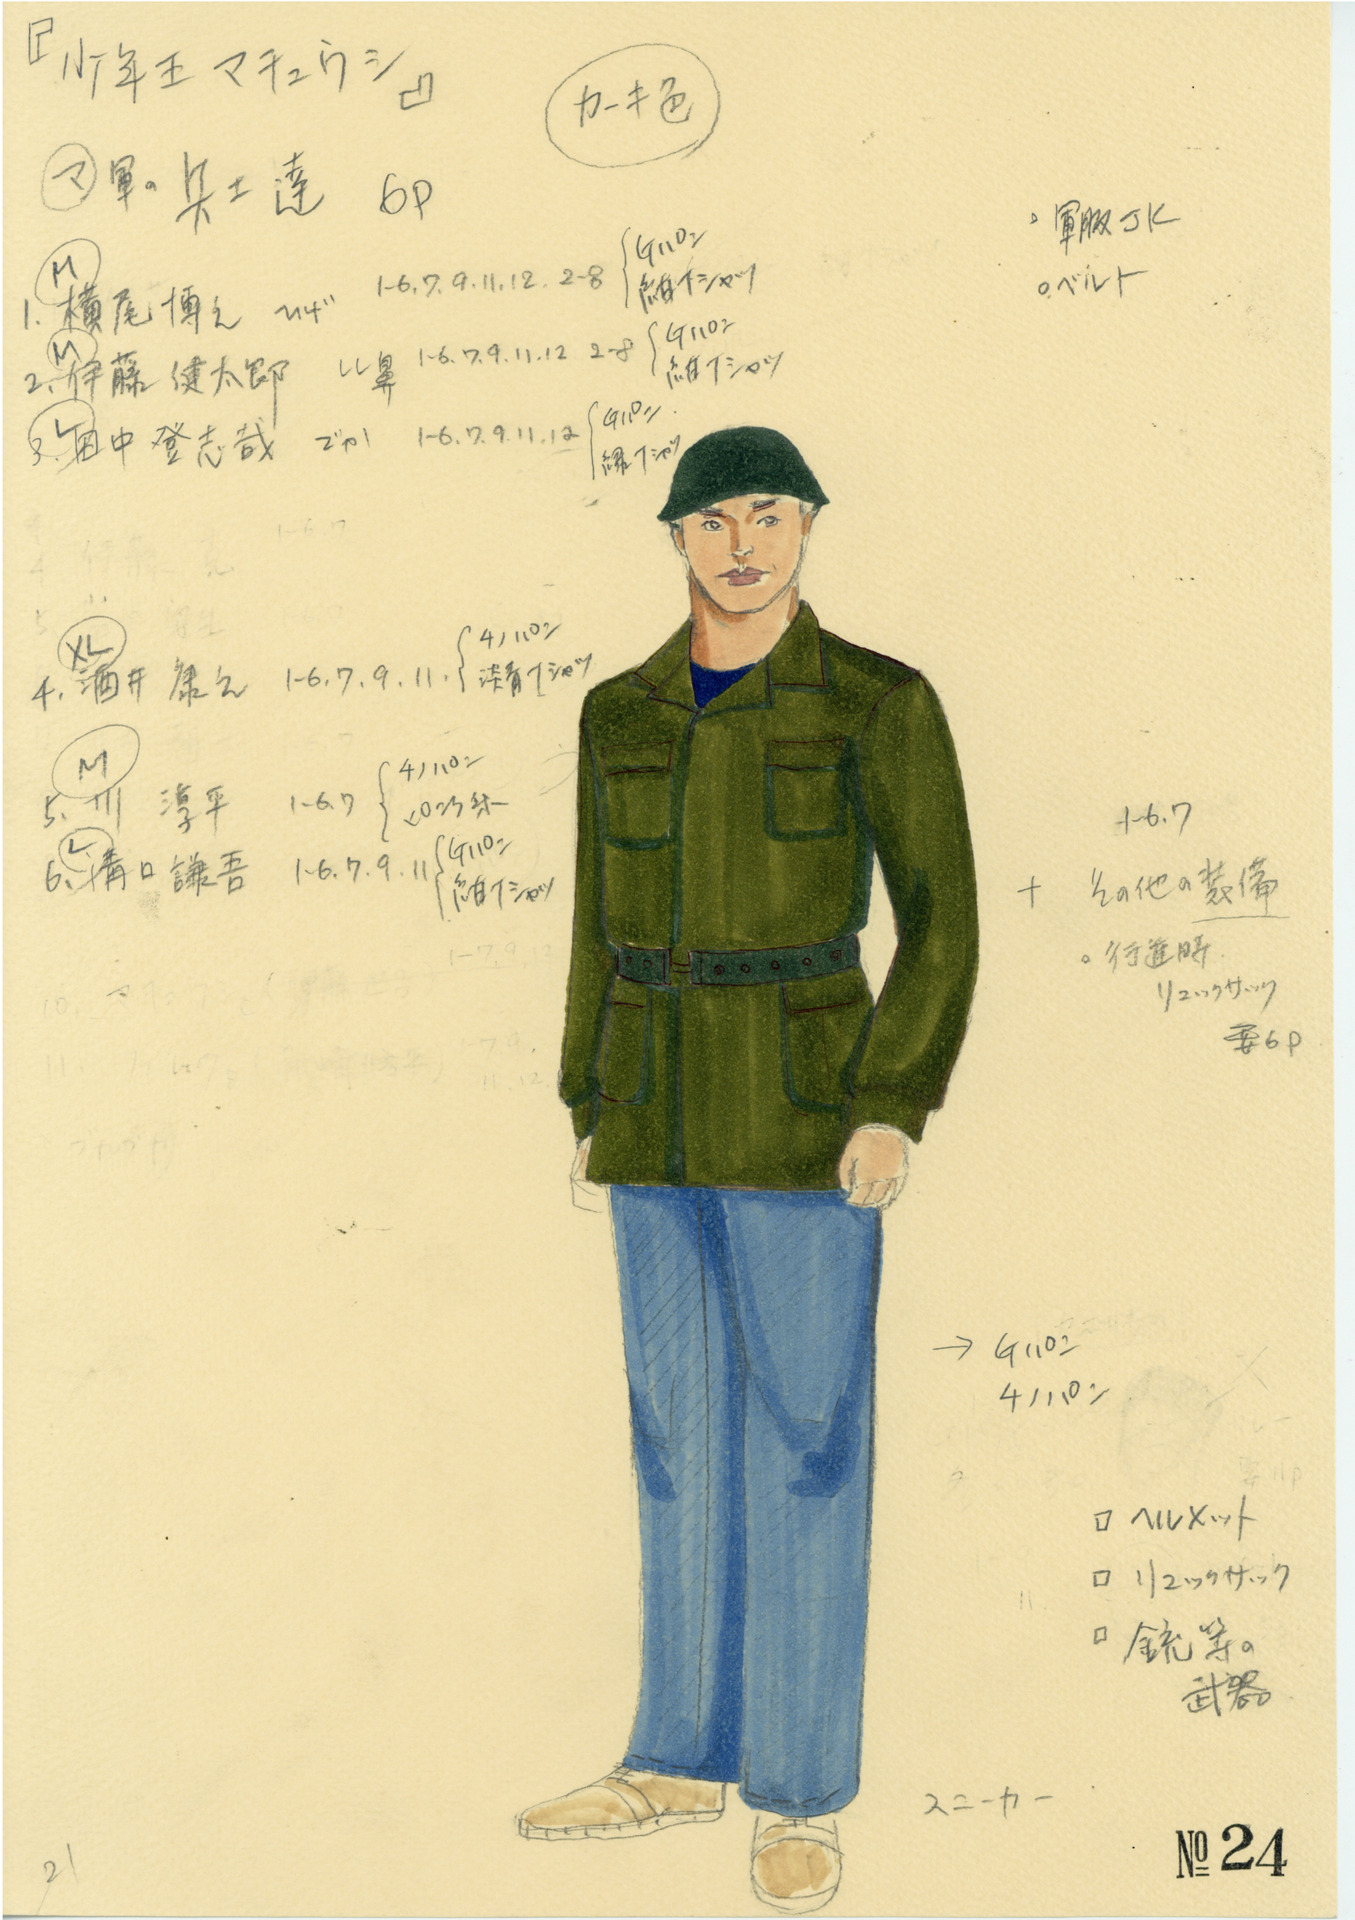 『少年王 マチュウシ』
カーキ色
マ 軍の 兵士達 6P
。軍服JK
。ベルト
M
1. 横尾 博之 ヒゲ 1-6.7.9.11.12. 2-8 { Gパン
紺Tシャツ
M
2. 伊藤 健太郎 しし鼻 1-6.7.9.11.12 2-8 { Gパン
紺Tシャツ
L
3. 田中 登志哉 でか 1-6.7.9.11.12 { Gパン
緑Tシャツ
1-6.7
XL
4. 酒井 康之 1-6.7.9.11. { チノパン
淡青Tシャツ
M
5. 川 淳平 1-6.7 { チノパン
L
6. 溝口 謙吾 1-6.7.9.11 { Gパン
紺Tシャツ
1-6.7
+ その他の装備
。行進時
リュックサック
要6P
→ Gパン
チノパン
□ ヘルメット
□ リュックサック
□ 銃等の
武器
スニーカー
№ 24
21